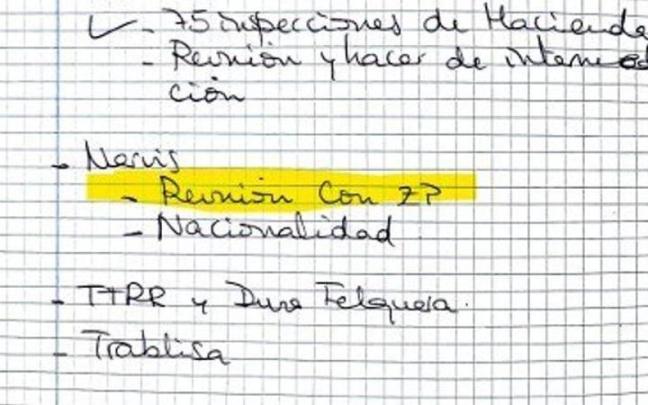 - 75 inspecciones de Hacienda
- Reunión y hacer de intermed
ción
- Nervis
- Reunión Con ZP
- Nacionalidad
- TTRR y Duro Felguera.
- Trablisa